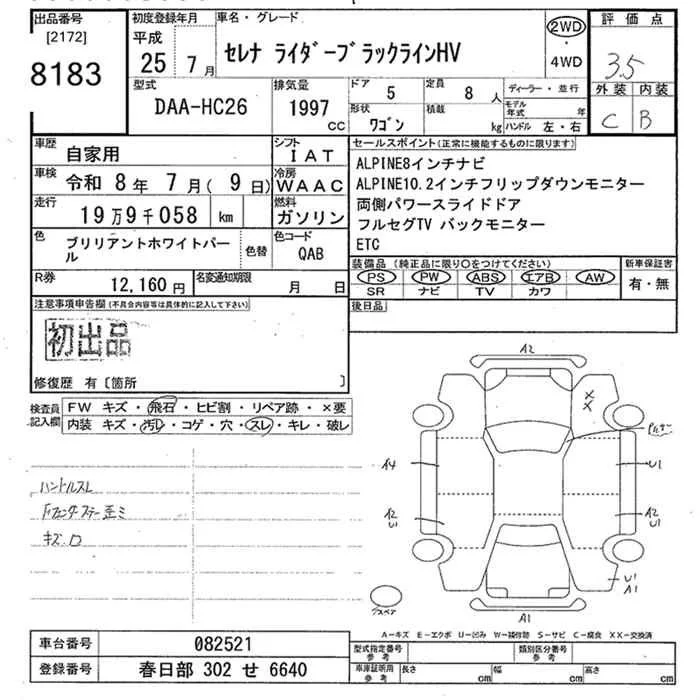 出品番号
[2172]
8183
初度登録年月
平成
25年7月
車名・グレード
セレナ ライダーブラックラインHV
2WD
・
4WD
評価点
3.5
外装 内装
C B
型式
DAA-HC26
排気量
1997
CC
ドア
5
定員
8人
形状
ワゴン
積載
kg
ディーラー・並行
モデル年式
年
ハンドル 左・右
車歴
自家用
シフト
IAT
車検
令和 8年 7月( 9日)
冷房
WAAC
走行
19万9千058 km
燃料
ガソリン
色
ブリリアントホワイトパール
色替
色コード
QAB
R券
12,160円
名変通知期限
月 日
セールスポイント(正常に機能するものに限ります)
ALPINE8インチナビ
ALPINE10.2インチフリップダウンモニター
両側パワースライドドア
フルセグTV バックモニター
ETC
装備品 (純正品に限り○をつけてください)
PS PW ABS エアB AW
SR ナビ TV カワ
新車保証書
有・無
後日品
注意事項申告欄(不具合内容等は具体的に記入して下さい)
初出品
修復歴 有〔箇所 〕
検査員記入欄
FW キズ・飛石・ヒビ割・リペア跡・×要
内装 キズ・汚レ・コゲ・穴・スレ・キレ・破レ
ハンドルスレ
Fフェンダーステー歪ミ
キズ
A2
XX
A4
U1
A2
U1
A2
U1
U1
A1
A1
スペア
A-キズ E-エクボ U-凹み W-補修跡 S-サビ C-腐食 XX-交換済
車台番号
082521
登録番号
春日部 302 せ 6640
型式指定番号
参考
類別区分番号
参考
車庫証明用
参考
長さ cm
幅 cm
高さ cm